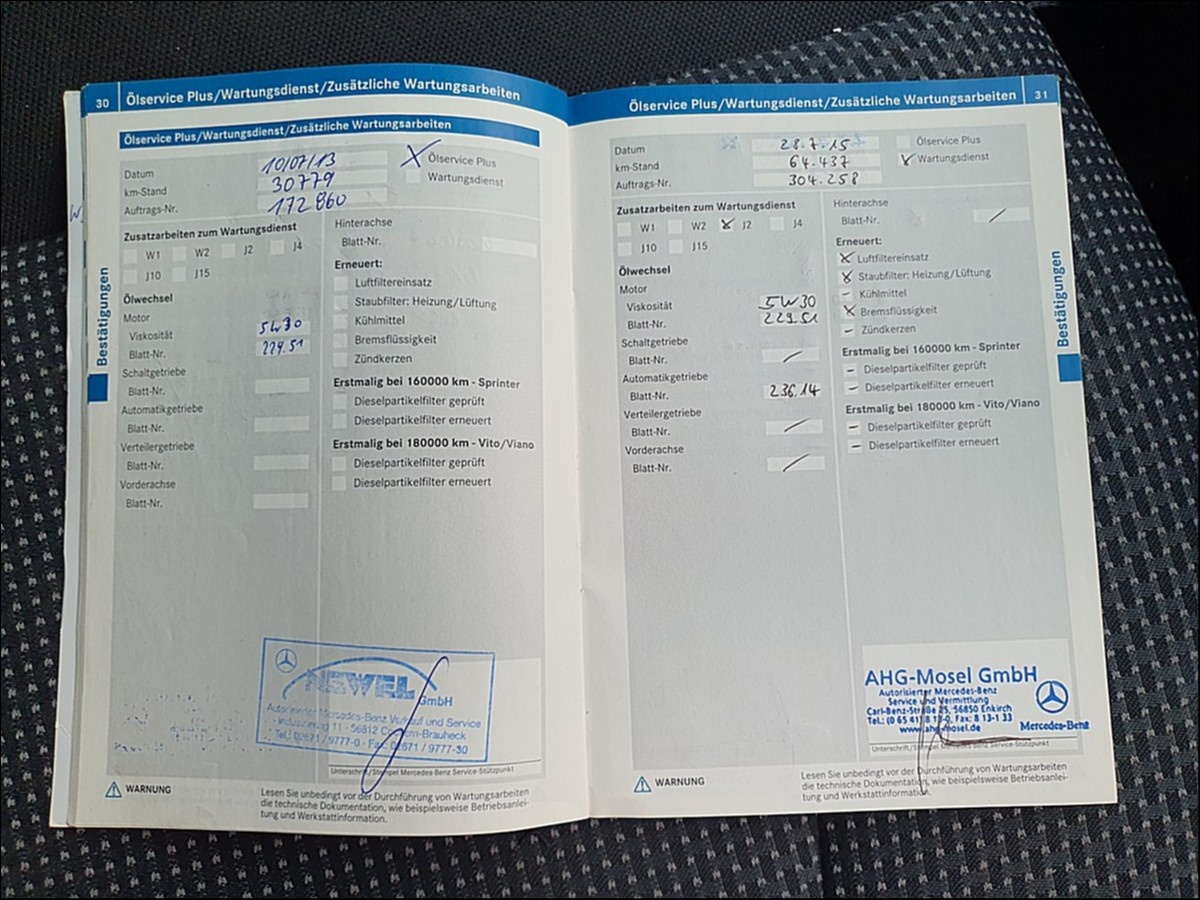 30 Ölservice Plus/Wartungsdienst/Zusätzliche Wartungsarbeiten
Ölservice Plus/Wartungsdienst/Zusätzliche Wartungsarbeiten
Datum 10/07/13 Ölservice Plus
km-Stand 30779 Wartungsdienst
Auftrags-Nr. 172860
Zusatzarbeiten zum Wartungsdienst
W1 W2 J2 J4
J10 J15
Ölwechsel
Motor
Viskosität 5W30
Blatt-Nr. 229.51
Schaltgetriebe
Blatt-Nr.
Automatikgetriebe
Blatt-Nr.
Verteilergetriebe
Blatt-Nr.
Vorderachse
Blatt-Nr.
Hinterachse
Blatt-Nr.
Erneuert:
Luftfiltereinsatz
Staubfilter: Heizung/Lüftung
Kühlmittel
Bremsflüssigkeit
Zündkerzen
Erstmalig bei 160000 km - Sprinter
Dieselpartikelfilter geprüft
Dieselpartikelfilter erneuert
Erstmalig bei 180000 km - Vito/Viano
Dieselpartikelfilter geprüft
Dieselpartikelfilter erneuert
Bestätigungen
NEWEL
GmbH
Autorisierter Mercedes-Benz Verkauf und Service
11 - 56812 Brauheck
Tel.: 02671 / 9777-0 - Fax: 02671 / 9777-30
Unterschrift/Stempel Mercedes-Benz Service-Stützpunkt
WARNUNG
Lesen Sie unbedingt vor der Durchführung von Wartungsarbeiten
die technische Dokumentation, wie beispielsweise Betriebsanlei-
tung und Werkstattinformation.
Ölservice Plus/Wartungsdienst/Zusätzliche Wartungsarbeiten 31
Datum 28.7.15 Ölservice Plus
km-Stand 64.437 Wartungsdienst
Auftrags-Nr. 304.258
Zusatzarbeiten zum Wartungsdienst
W1 W2 J2 J4
J10 J15
Ölwechsel
Motor
Viskosität 5W30
Blatt-Nr. 229.51
Schaltgetriebe
Blatt-Nr.
Automatikgetriebe
Blatt-Nr. 236.14
Verteilergetriebe
Blatt-Nr.
Vorderachse
Blatt-Nr.
Hinterachse
Blatt-Nr.
Erneuert:
Luftfiltereinsatz
Staubfilter: Heizung/Lüftung
Kühlmittel
Bremsflüssigkeit
Zündkerzen
Erstmalig bei 160000 km - Sprinter
Dieselpartikelfilter geprüft
Dieselpartikelfilter erneuert
Erstmalig bei 180000 km - Vito/Viano
Dieselpartikelfilter geprüft
Dieselpartikelfilter erneuert
Bestätigungen
AHG-Mosel GmbH
Autorisierter Mercedes-Benz
Service und Vermittlung
Carl-Benz-Straße 25, 56850 Enkirch
Tel.: (0 65 41) Fax: 8 13-1 33
www.ahg-mosel.de
Mercedes-Benz
Unterschrift/Stempel Mercedes-Benz Service-Stützpunkt
WARNUNG
Lesen Sie unbedingt vor der Durchführung von Wartungsarbeiten
die technische Dokumentation, wie beispielsweise Betriebsanlei-
tung und Werkstattinformation.